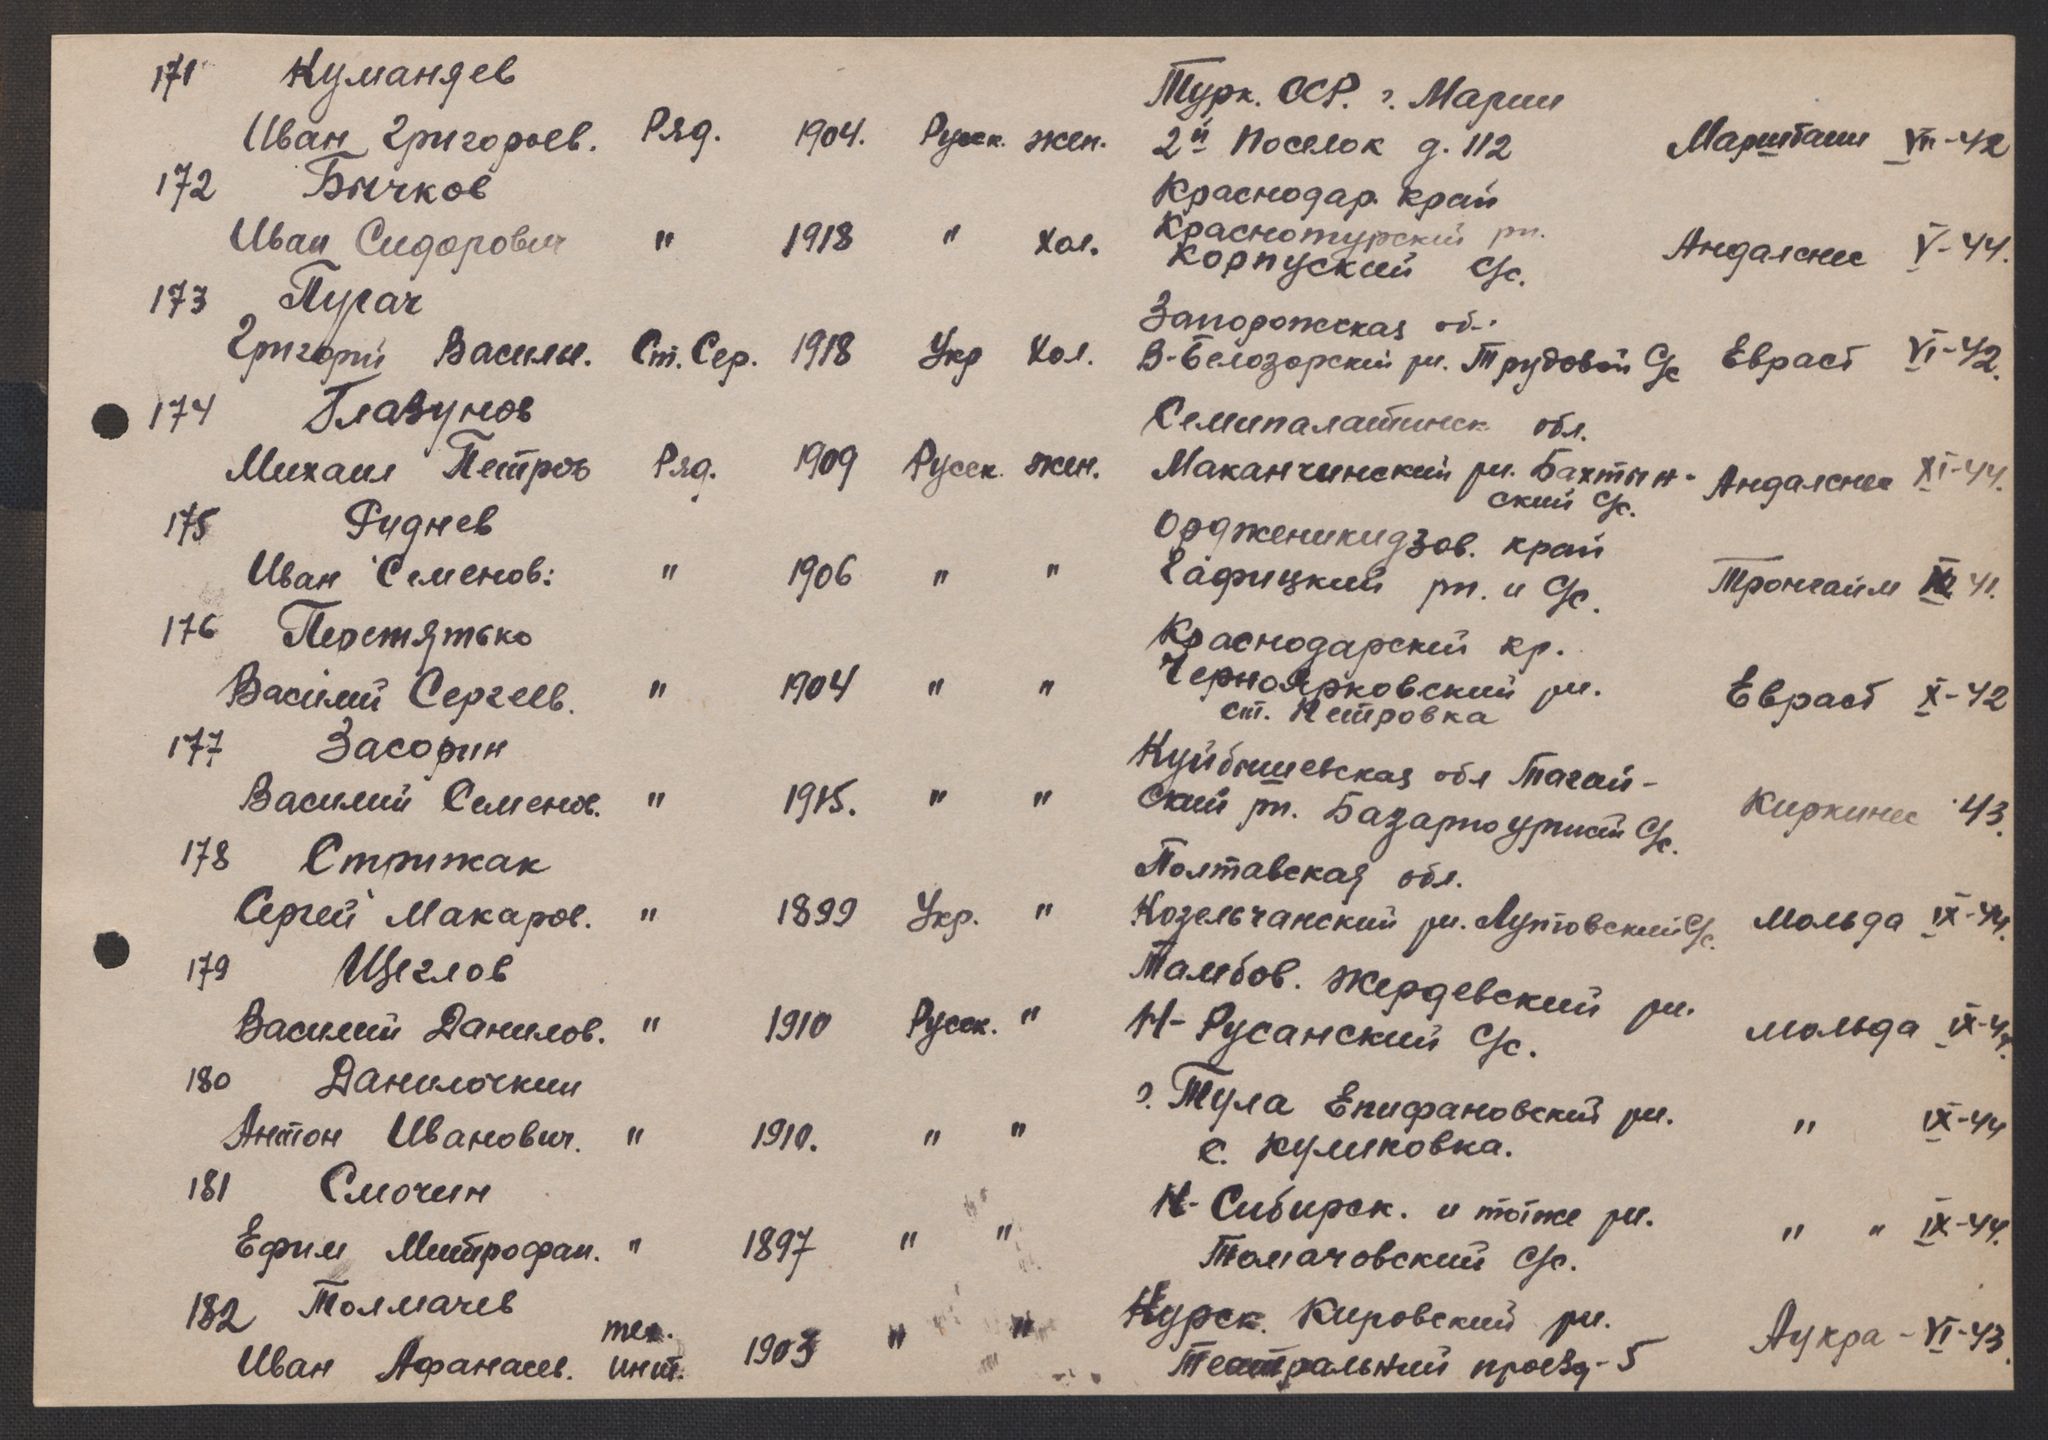 171 Куманяев
Турк. ССР. г. Марии
Иван Григорьев. Ряд. 1904. Русск. жен. 2й Поселок д. 112 VII-42
172 Бычков
Краснодар. край
Иван Сидорович " 1918 " Хол. Андалснес V-44.
Корпуский С/с.
173 Пугач
Запорожская об.
Григорий Василь. Ст. Сер. 1918 Укр Хол. В-Белозорский рн. Трудовой С/с Евраст VI-42.
174 Глазунов
Семипалатинск обл.
Михаил Петров Ряд. 1909 Русск. жен. Маканчинский рн. Бахтын- Андалснес XI-44.
ский С/с.
175 Руднев
Ордженикидзов. край
Иван Семенов. " 1906 " " рн. и С/с. Тронгайм 41.
176 Перетятько
Краснодарский кр.
Василий Сергеев. " 1904 " " Черноярковский рн. Евраст X-42
ст. Петровка
177 Засорин
Куйбышевская обл Тагай-
Василий Семенов. " 1915. " " ский рн. С/с. Киркинес 43.
178 Стрижак
Полтавская обл.
Сергей Макаров. " 1899 Укр. " Козельчанский рн. Лутовский С/с. Мольда IX-44.
179 Щеглов
Тамбов. Жердевский рн.
Василий Данилов. " 1910 Русск. " Н-Русанский С/с. Мольда IX-44.
180 Данилочкин
г. Тула Епифановский рн.
Антон Иванович. " 1910. " " с. Куликовка. " IX-44
181 Смочин
Н-Сибирск. и тоже рн.
Ефим Митрофан. " 1897 " " Толмачовский С/с. " " IX-44.
182 Толмачев
Курск. Кировский рн.
Иван Афанасев. тех. инт. 1903 " " Театральний проезд-5 Аукра-VI-43.